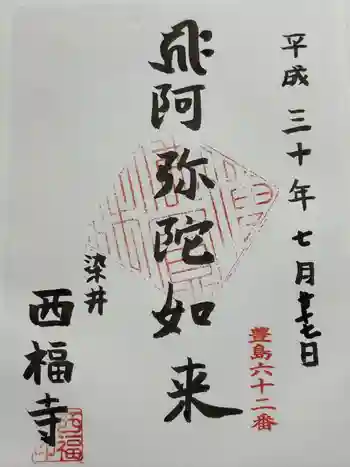 平成三十年七月廿七日
豊島六十二番
阿弥陀如来
染井
西福寺
西福